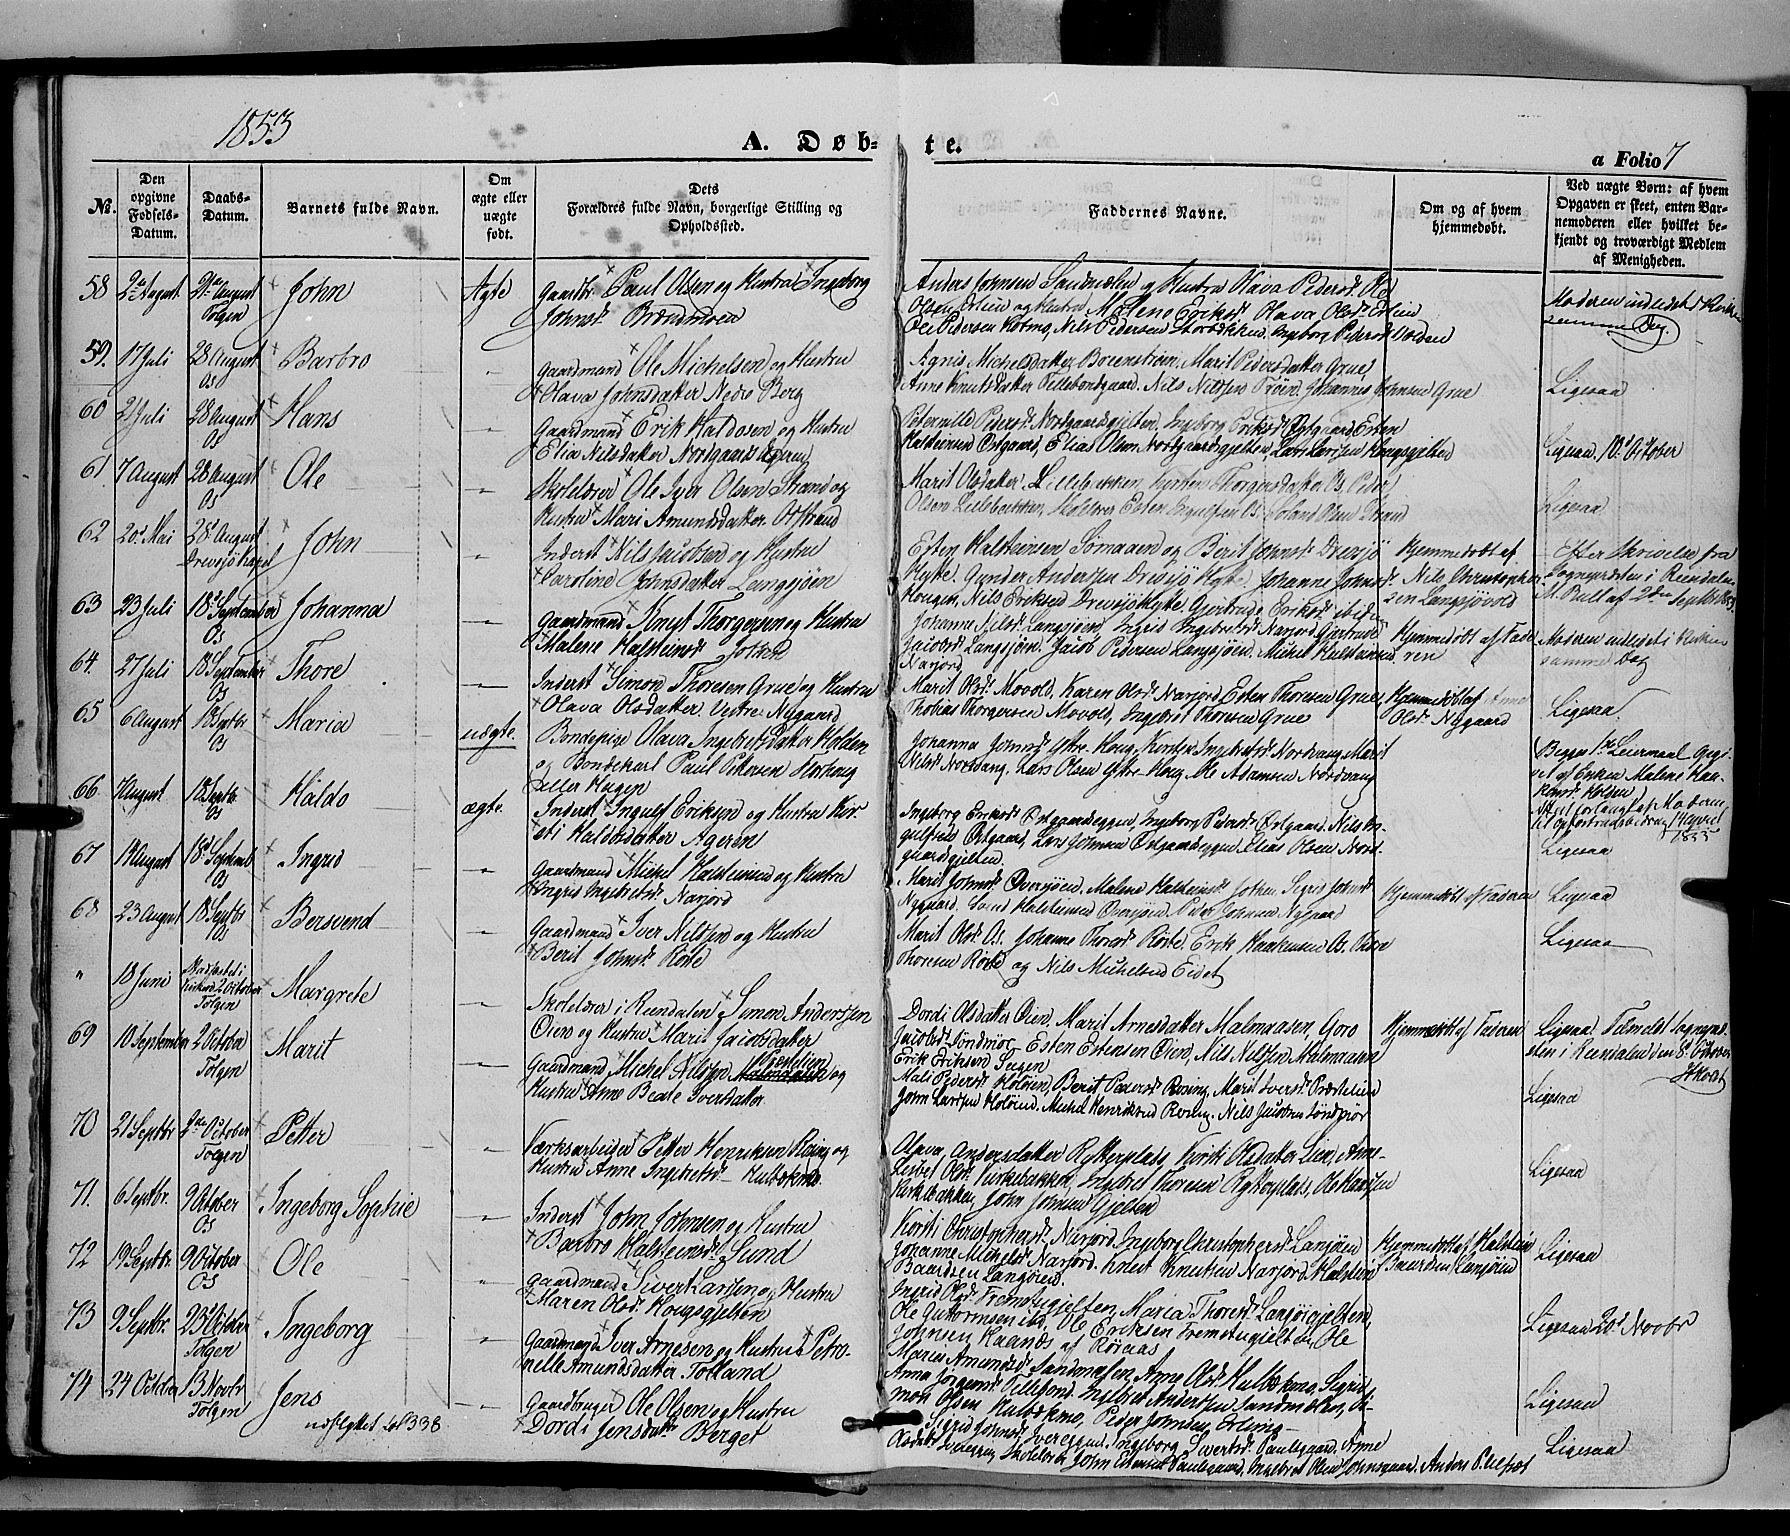 1853
A. Døb-
te.
a Folio 7
No.
Den opgivne Fødsels-Datum.
Daabs-Datum.
Barnets fulde Navn.
Om ægte eller uægte født.
Dets Forældres fulde Navn, borgerlige Stilling og Opholdssted.
Faddernes Navne.
Om og af hvem hjemmedøbt.
Ved uægte Børn: af hvem Opgaven er skeet, enten Barnemoderen eller hvilket bekjendt og troværdigt Medlem af Menigheden.
58 2de August 21de August Tolgen John Ægte Gaardbr. Paul Olsen og Hustru Ingeborg
Johnsd. Brændmoen
Anders Johnsen Sandmælen og Hustru Olava Pedersd.
Olsen Erlien og Hustru Malene Eriksd. Olava Olsd. Erlien
Ole Pedersen Holmo, Nils Pedersen Storbekken, Ingeborg Pedersd.
Moderen indledet i Kirken
samme Dag
59. 17 Juli 28 August Os Barbro Gaardmand Ole Michelsen og Hustru
Olava Johnsdatter Nedre Berg
Agnis Michelsdatter Borenstrøm, Marit Pedersdatter Grue,
Anne Knutsdatter Tillebondgaard, Nils Nilssen Trøen, Johannes Johnsen Grue
Ligesaa
60 2 Juli 28 August Os Hans Gaardmand Erik Haldosen og Hustru
Elia Nilsdatter Nordgaards
Peternille Pedersd. Nordgaardsgjelten, Ingeborg Eriksd. Østgaard, Esten
Halsteinsen Østgaard, Elias Olsen Nordgaardsgjelten, Lars Larssen Haugsgjelten
Ligesaa 10d October
61 7 August 28 August Os Ole Skolelærer Ole Iver Olsen Strand og
Hustru Mari Amundsdatter
Marit Olsdatter Lillebekken, Kirsten Thorgersdatter Os, Peder
Olsen Lillebekken, Skolelærer Esten Ingulfsen Os
Ligesaa
62 20de Mai 28d August Drevsjø Kapel John Inderst Nils Jacobsen og Hustru
Caroline Johnsdatter Langsjøen
Esten Halsteinsen Sømaaen og Berit Johnsd. Drevsjø
Hytte, Gunder Andersen Drevsjø Hytte, Johanne Johnsd.
Haugen, Nils Eriksen Drevsjø Hytte, Gjertrude Eriksd. ibid.
Hjemmedøbt af
Nils Christopher-
sen Langsjøvold
Efter Skrivelse fra
Sognepræsten i Rendalen
M. Bull af 2den Septbr 1853
63 23 Juli 18d September Os Johanna Gaardmand Knut Thorgersen og Hustru
Malene Halsteinsd. Joten
Johanne Nilsd. Langsjøen, Ingrid Ingebretsd. Narjord, Gjertrude
Jacobsd. Langsjøen, Jacob Pedersen Langsjøen, Michel Halsteinsen
Narjord
Hjemmedøbt af Fade-
ren
Moderen indledet i Kirken
samme Dag
64. 27 Juli 18d September Os Thore Inderst Simon Thoresen Grue og Hustru
Olava Olsdatter Vestre Nygaard
Marit Olsd. Movold, Karen Olsd. Narjord, Esten Thoresen Grue,
Thobias Thorgersen Movold, Ingebret Thoresen Grue
Hjemmedøbt af Anne
Olsd. Nygaard
Ligesaa.
65 6 August 18 Septbr Os Maria uægte. Bondepige Olava Ingebretsdatter Holden
og Bondekarl Paul Pettersen
eller Hagen
Johanna Johnsd. Ytre-Houg, Kirsten Ingebretsd. Nordvang, Marit
Nilsd. Nordvang, Lars Olsen Ytre-Houg, Ole Adamsen Nordvang
Begges 1ste Leiermaal. Opgi-
vet af Enken Malene Haa-
66 August 18 Septbr. Os Haldo ægte. Inderst Ingulf Eriksen og Hustru Kir-
sti Haldosdatter Ageren
Ingeborg Eriksd. Østgaardseggen, Ingeborg Pedersd. Østgaard, Nils In-
gulfsen Østgaard, Lars Johnsen Østgaardseggen, Elias Olsen Nord-
gaardsgjelten
Ligesaa
67 14 August 18d Septemb Os Ingrid Gaardmand Michel Halsteinsen og Hustru
Ingrid Ingebretsd. Narjord
Marit Johnsd. Oversjøen, Malene Halsteinsd. Joten, Sigrid Johnsd.
Nygaard, Halsteinsen Oversjøen, Peder Johnsen Nygaard
Hjemmedøbt af Faderen
Ligesaa
68 23 August 18 Septbr Os Bersvend Gaardmand Iver Nilssen og Hustru
Berit Johnsd. Røste
Marit Olsd. Os, Johanne Thoresd. Røste, Erik Haakensen Os, Thore
Thoresen Røste og Nils Michelsen Eidet
Ligesaa
" 18 Juni Stadfæstet i Kirken 2 October Tolgen Margrete Skolelærer i Rendalen Simon Andersen
Øien og Hustru Marit Jacobsdatter
Dordi Olsdatter Øien, Marit Arnesdatter Malmaasen, Goro
Jacobsd. Søndmoe, Esten Estensen Øien, Nils Nilssen Malmaasen
Erik Eriksen
Hjemmedøbt af Faderen
Ligesaa. Tilmeldt Sognepræ-
sten i Rendalen den 8d October
69 10 September 2 October Tolgen Marit Gaardmand Michel Nilssen og
Hustru Anne Beate Iversdatter
Mali Pedersd. Holøien, Berit Pedersd. Røsing, Marit Iversd.
John Larssen Holøien, Michel Henriksen Røsing, Nils
Ligesaa
70 21 Septbr 2den October Tolgen Petter Værksarbeider Petter Henriksen Røsing og
Hustru Anne Ingebretsd. Kulbekmo
Olava Andersdatter Rytterplads, Kirsti Olsdatter Lien, Anne
Lisbet Olsd. Kirkebakken, Ingebret Thoresen Rytterplads, Ole Hansen
Kirkebakken, John Johnsen Gjelten
Ligesaa
71. 6 Septbr. 9 October Os Ingeborg Sophie Inderst John Johnsen og Hustru
Barbro Halsteinsd. Sund
Kirsti Christophersd. Narjord, Ingeborg Christophersd. Langsjøen
Johanne Michelsd. Narjord, Knut Knutsen Narjord, Halstein
Baardsen Langsjøen.
Hjemmedøbt af Halstein
Baardsen Langsjøen
Ligesaa
72 19 Septbr. 9 October Os Ole Gaardmand Sivert Larsen og Hustru
Maren Olsd. Hougsgjelten
Ingrid Olsd. Fremstegjelten, Maria Thoresd.
Ole Guttormsen ibd., Ole Eriksen Fremstegjelten, Ole
Johnsen Haanes af Røraas
Ligesaa 20d Novbr
73 9 Septbr. 23d October Tolgen Ingeborg Gaardmand Iver Arnesen og Hustru Petro-
nelle Amundsdatter Tolland
Maries Amundsd. Sandmælen, Anne Olsd. Kulbekmo, Sigrid
Anna Jørgensd. Tillefond, Ingebret Andersen Sandmælen, Si-
mon Olsen Kulbekmo, Peder Johnsen Erlien
Ligesaa
74 24 October 13 Novbr Tolgen Jens
udflyttet
338
Gaardbruger Ole Olsen og Hustru
Dordi Jensdatter Berget
Sigrid Johnsd. Ivereggen, Ingeborg Sivertsd. Paulsgaard, Anne
Olsdatter Ivereggen, Skolelærer John Estensen Paulsgaard, Ingebret Olsen Johnsgaard, Anders
Ligesaa